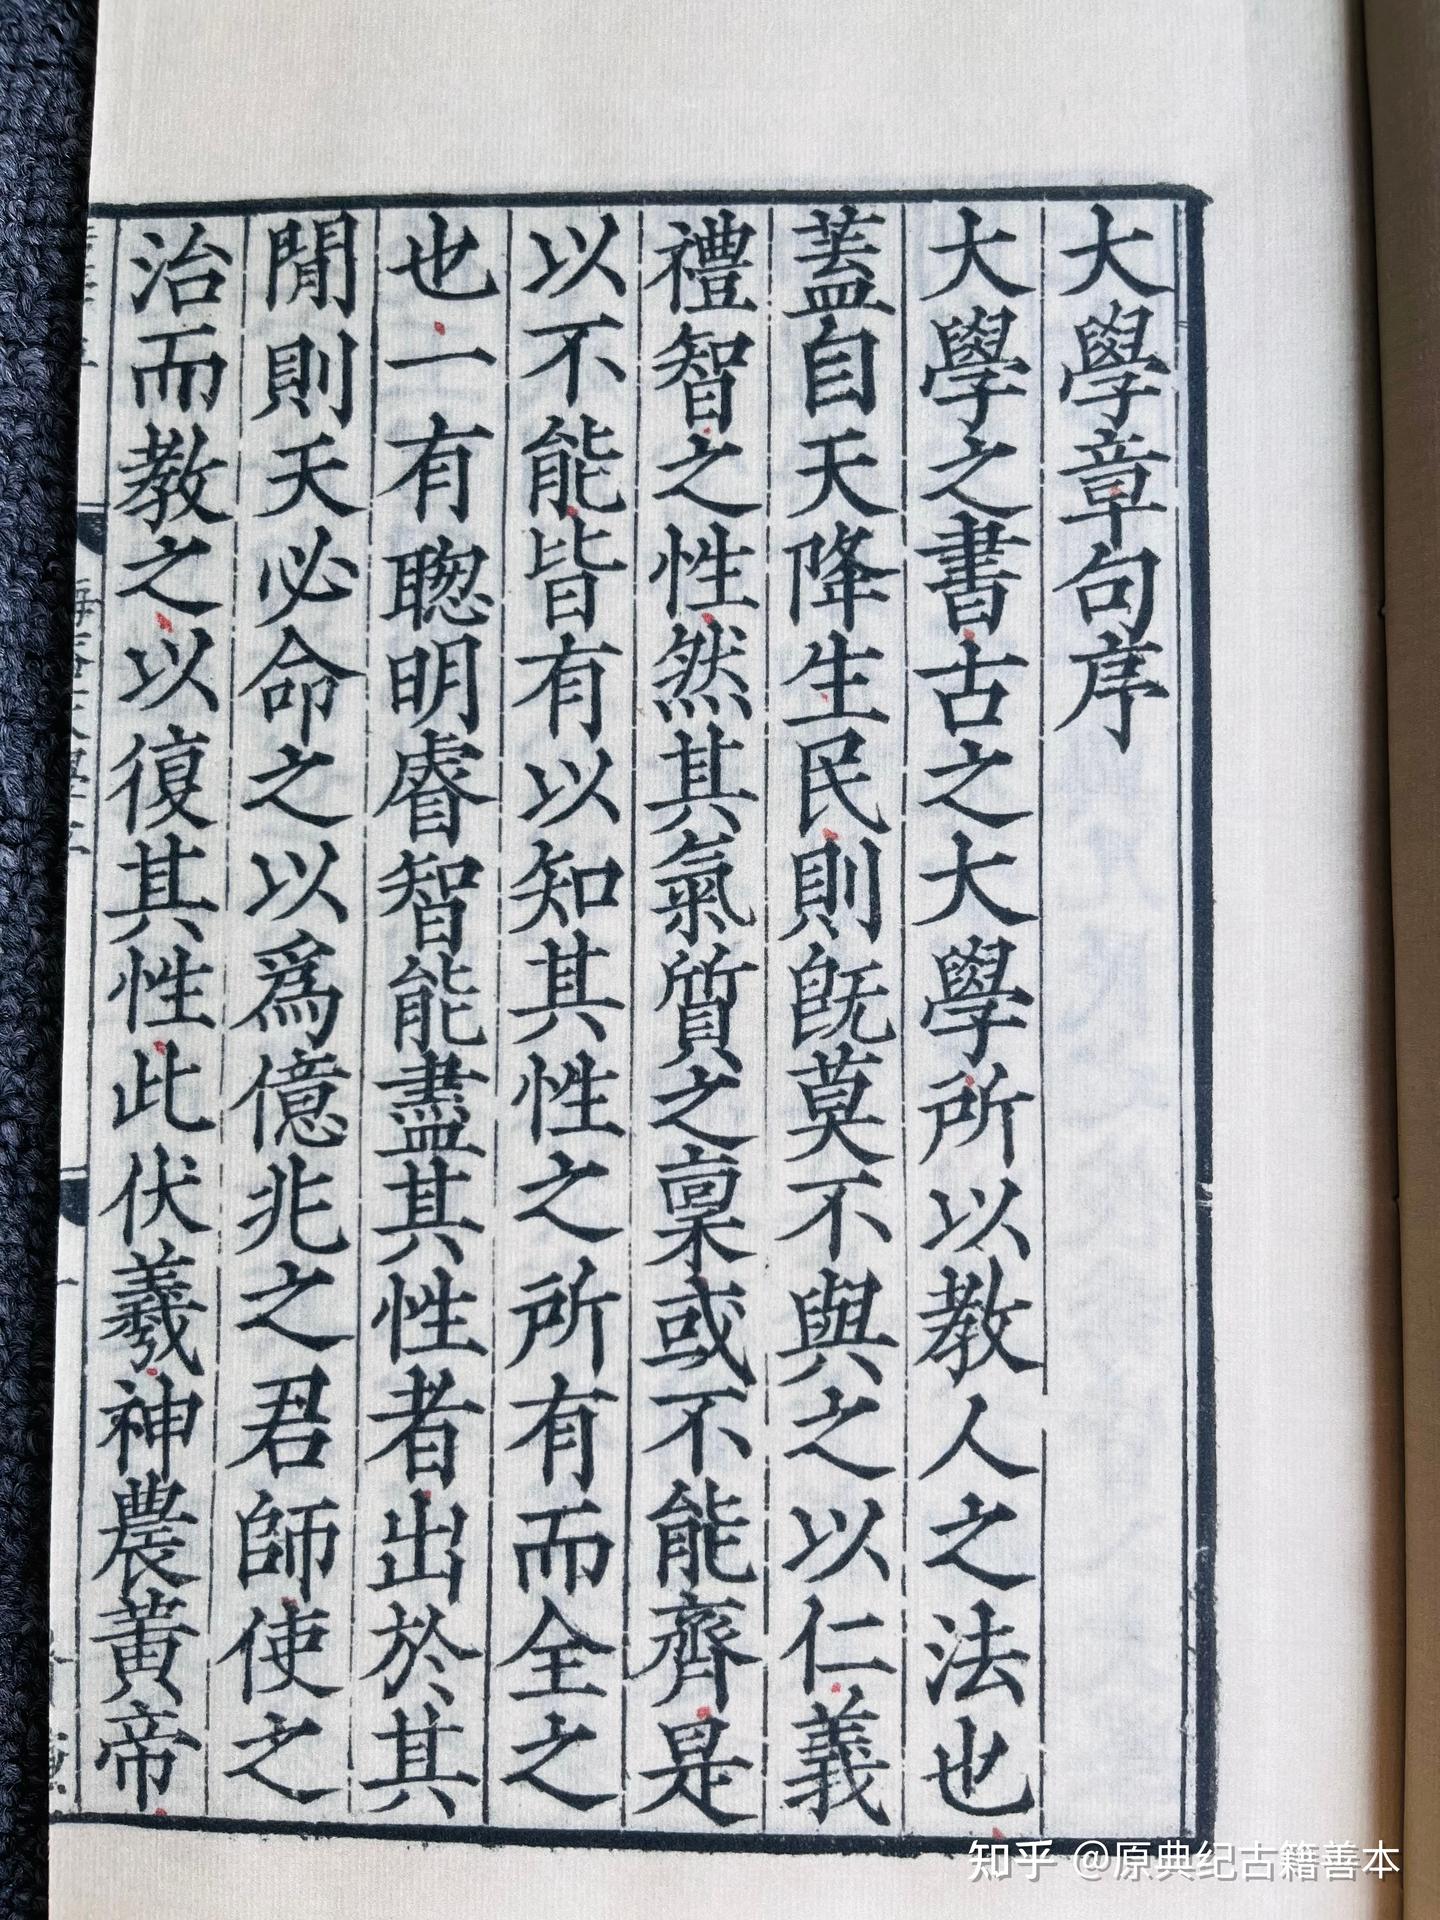 大學章句序
大學之書古之大學所以教人之法也
蓋自天降生民則旣莫不與之以仁義
禮智之性然其氣質之稟或不能齊是
以不能皆有以知其性之所有而全之
也一有聦明睿智能盡其性者出於其
閒則天必命之以爲億兆之君師使之
治而教之以復其性此伏羲神農黃帝
知乎 @原典纪古籍善本